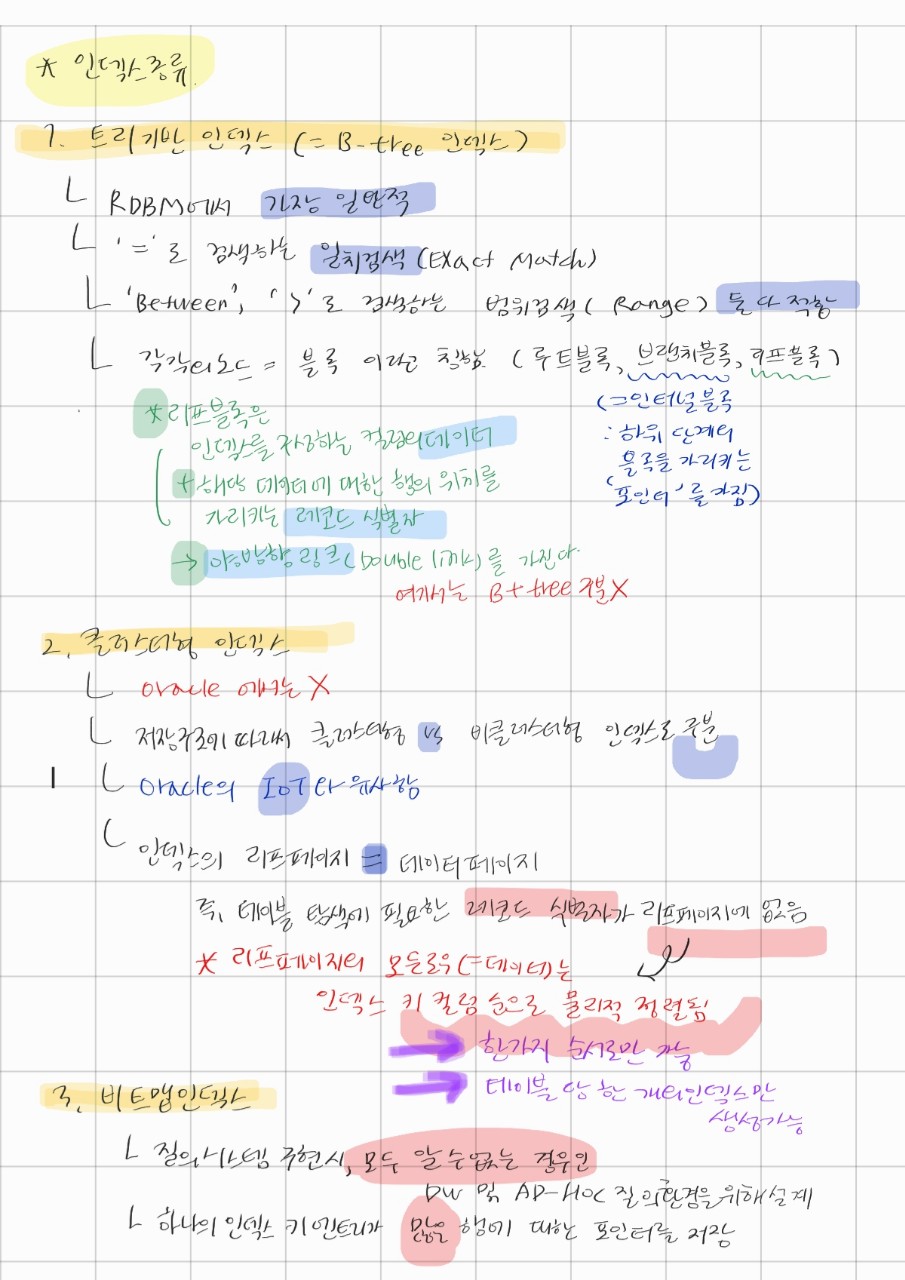 * 인덱스종류.
1. 트리기반 인덱스 (= B-tree 인덱스)
└ RDBM에서 가장 일반적
└ '='로 검색하는 일치검색 (Exact Match)
└ 'Between', '>'로 검색하는 범위검색 (Range) 둘 다 적합
└ 각각의 노드 = 블록 이라고 칭함 (루트블록, 브랜치블록, 리프블록)
(=인터널블록
: 하위 단계의
블록을 가리키는
'포인터'를 가짐)
* 리프블록은
인덱스를 구성하는 컬럼의 데이터
+ 해당 데이터에 대한 행의 위치를
가리키는 레코드 식별자
→ 양방향 링크(Double link)를 가진다.
여기서는 B+tree 구분X
2. 클러스터형 인덱스
└ Oracle 에서는 X
└ 저장구조에 따라서 클러스터형 vs 비클러스터형 인덱스로 구분
└ Oracle의 IOT와 유사함
└ 인덱스의 리프페이지 = 데이터페이지
즉, 테이블 탐색에 필요한 레코드 식별자가 리프페이지에 없음
* 리프페이지의 모든로우(=데이터)는
인덱스 키 컬럼 순으로 물리적 정렬됨
→ 한가지 순서로만 가능
→ 테이블 당 한 개의인덱스만
생성가능
3. 비트맵인덱스
└ 질의시스템 구현시, 모두 알 수 없는 경우인
DW 및 AD-HOC 질의환경을 위해 설계
└ 하나의 인덱스 키 엔트리가 많은 행에 대한 포인터를 저장